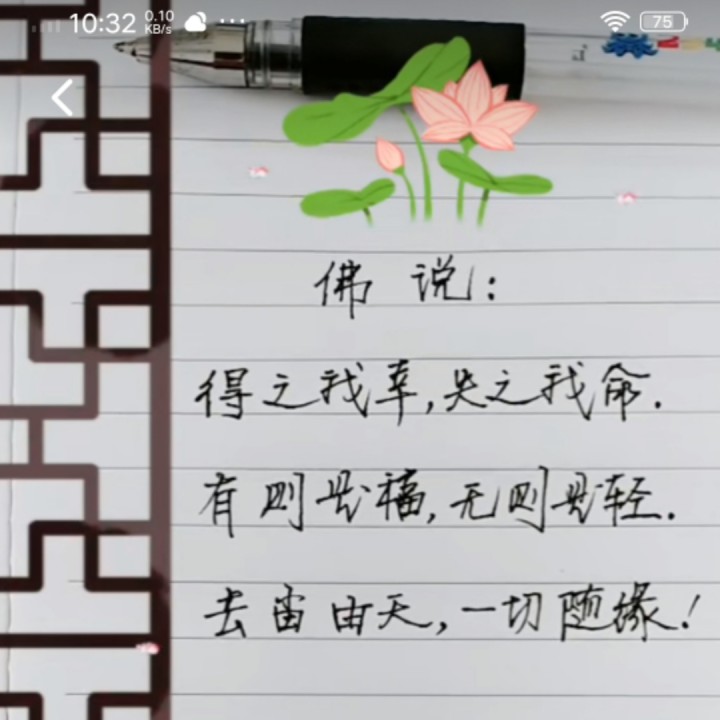 10:32 0.10 KB/s ... 75
佛 说:
得之我幸,失之我命.
有则是福,无则是轻.
去留由天,一切随缘!